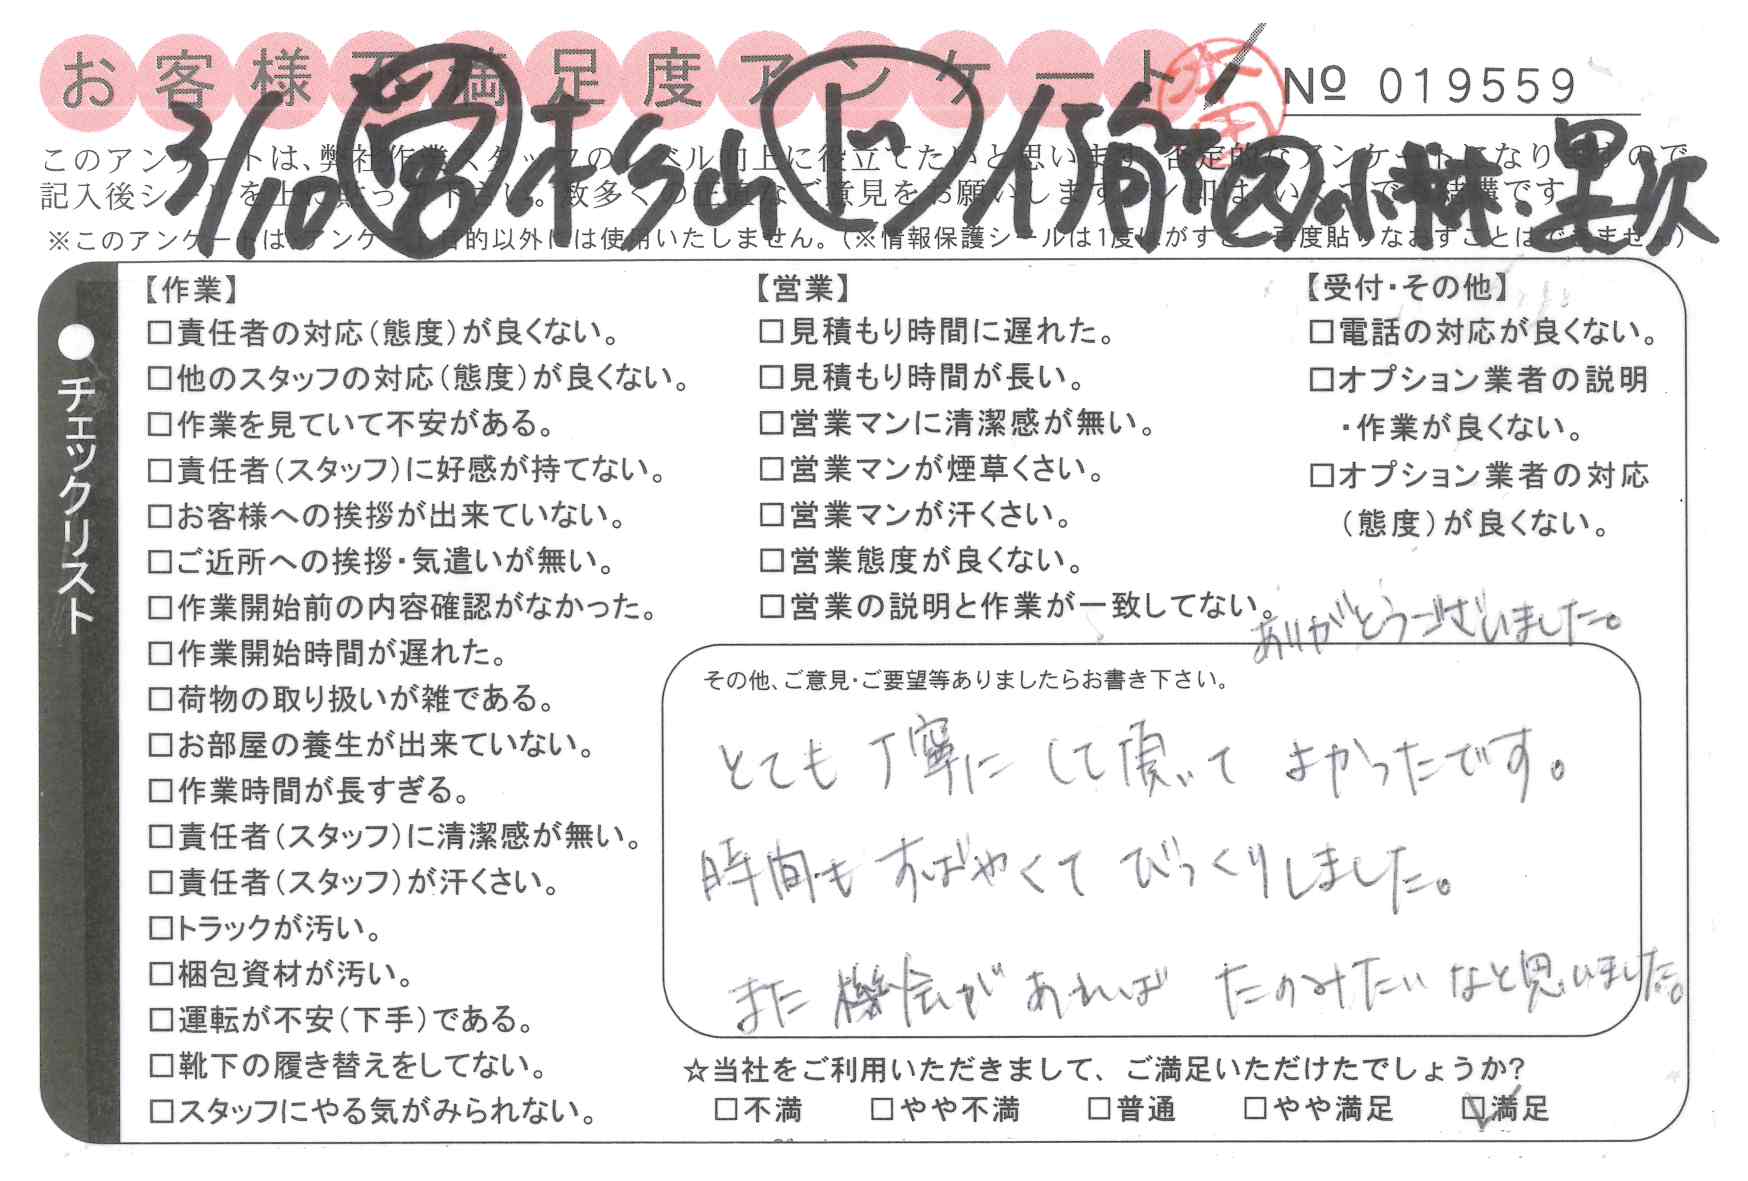 お客様不満足度アンケート
№ 019559
3/10 宮 杉山 上 小林
このアンケートは、弊社作業スタッフのレベル向上に役立てたいと思います。否定的なアンケートになりますので
記入後シールを上に貼って下さい。数多くの正直なご意見をお願いします。
※このアンケートは、アンケート目的以外には使用いたしません。（※情報保護シールは1度はがすと、再度貼りなおすことはできません）
●チェックリスト
【作業】
□責任者の対応（態度）が良くない。
□他のスタッフの対応（態度）が良くない。
□作業を見ていて不安がある。
□責任者（スタッフ）に好感が持てない。
□お客様への挨拶が出来ていない。
□ご近所への挨拶・気遣いが無い。
□作業開始前の内容確認がなかった。
□作業開始時間が遅れた。
□荷物の取り扱いが雑である。
□お部屋の養生が出来ていない。
□作業時間が長すぎる。
□責任者（スタッフ）に清潔感が無い。
□責任者（スタッフ）が汗くさい。
□トラックが汚い。
□梱包資材が汚い。
□運転が不安（下手）である。
□靴下の履き替えをしてない。
□スタッフにやる気がみられない。
【営業】
□見積もり時間に遅れた。
□見積もり時間が長い。
□営業マンに清潔感が無い。
□営業マンが煙草くさい。
□営業マンが汗くさい。
□営業態度が良くない。
□営業の説明と作業が一致してない。
【受付・その他】
□電話の対応が良くない。
□オプション業者の説明
・作業が良くない。
□オプション業者の対応
（態度）が良くない。
ありがとうございました。
その他、ご意見・ご要望等ありましたらお書き下さい。
とても丁寧にして頂いてよかったです。
時間もすばやくてびっくりしました。
また機会があればたのみたいなと思いました。
☆当社をご利用いただきまして、ご満足いただけたでしょうか？
□不満 □やや不満 □普通 □やや満足 ☑満足